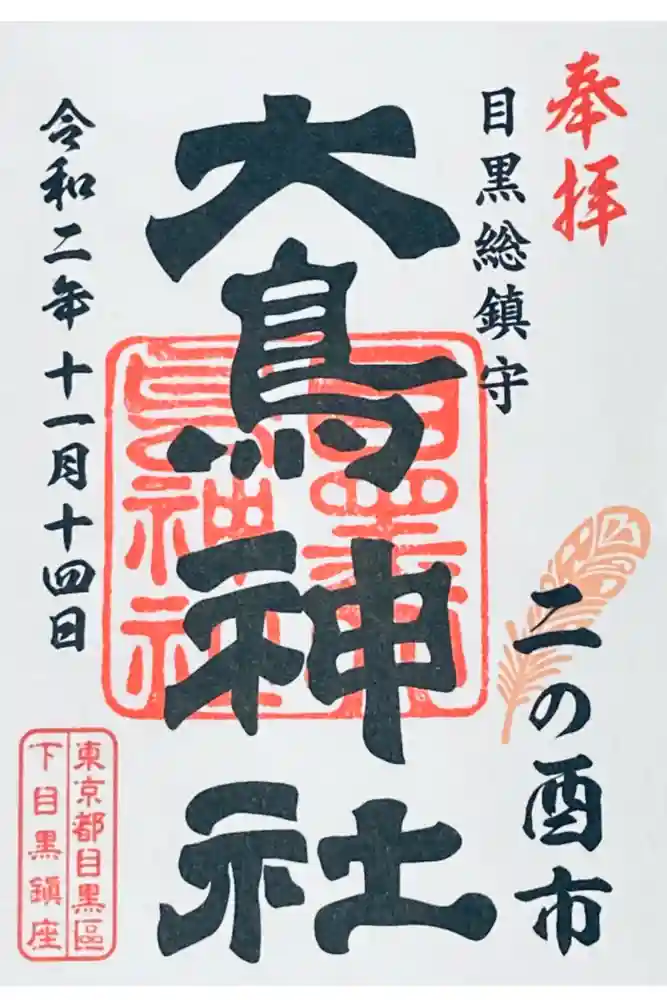 奉拝
目黒総鎮守
二の酉市
大鳥神社
目黒大鳥神社
令和二年十一月十四日
東京都目黒區
下目黒鎮座